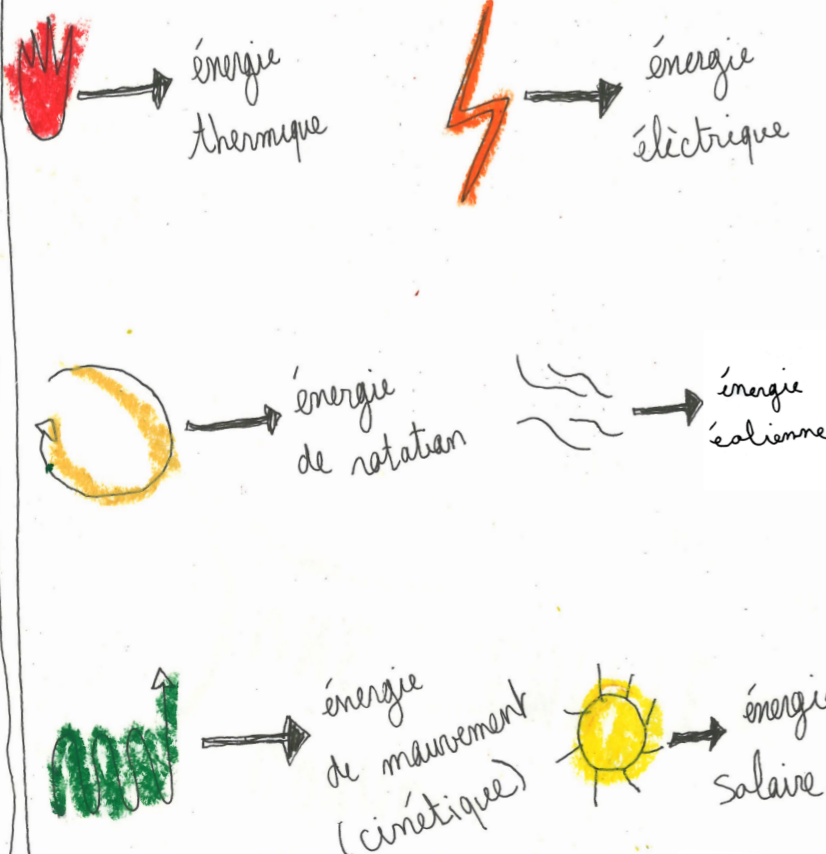 énergie
thermique
énergie
élèctrique
énergie
de rotation
énergie
éolienne
énergie
de mouvement
(cinétique)
énergie
Solaire